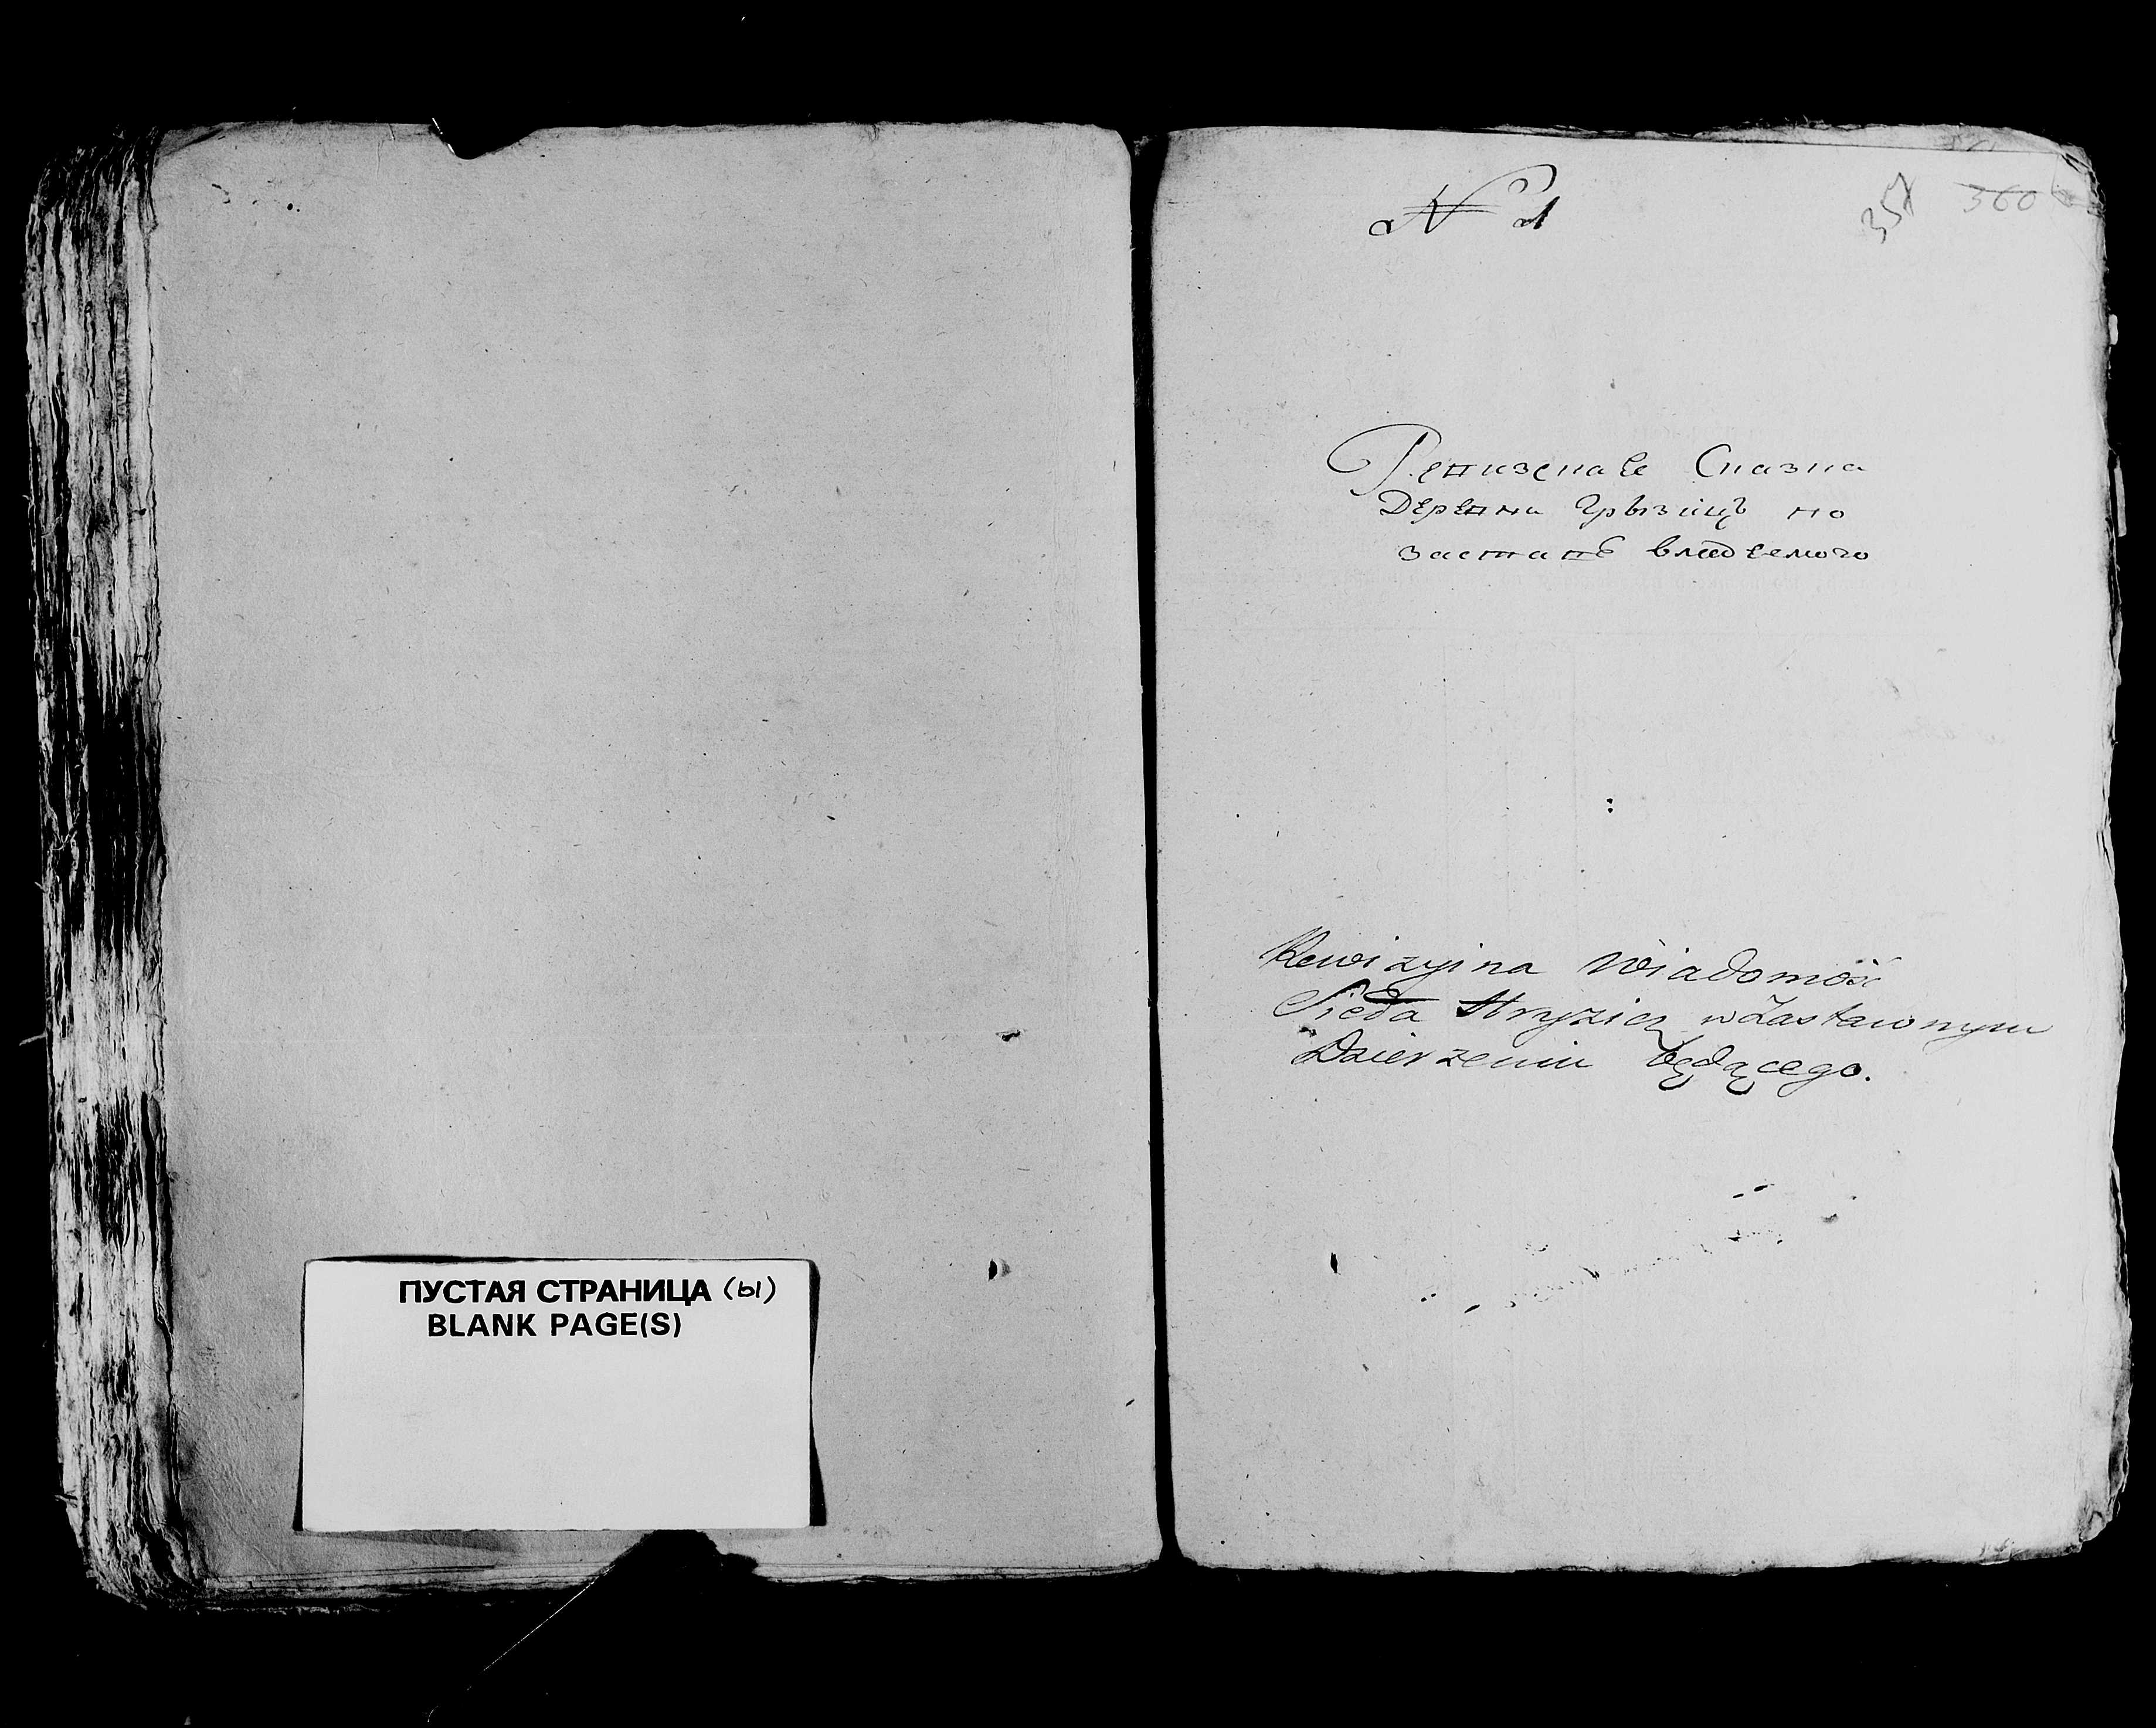 ПУСТАЯ СТРАНИЦА (ы)
BLANK PAGE(S)
№ 1
357 360
Ревизская Сказка
Деревни Грызицъ по
заставѣ владѣемого
Rewizyina Wiadomość
Sieła Hryzicz w Zastawnym
Dzierzeniu będącego.